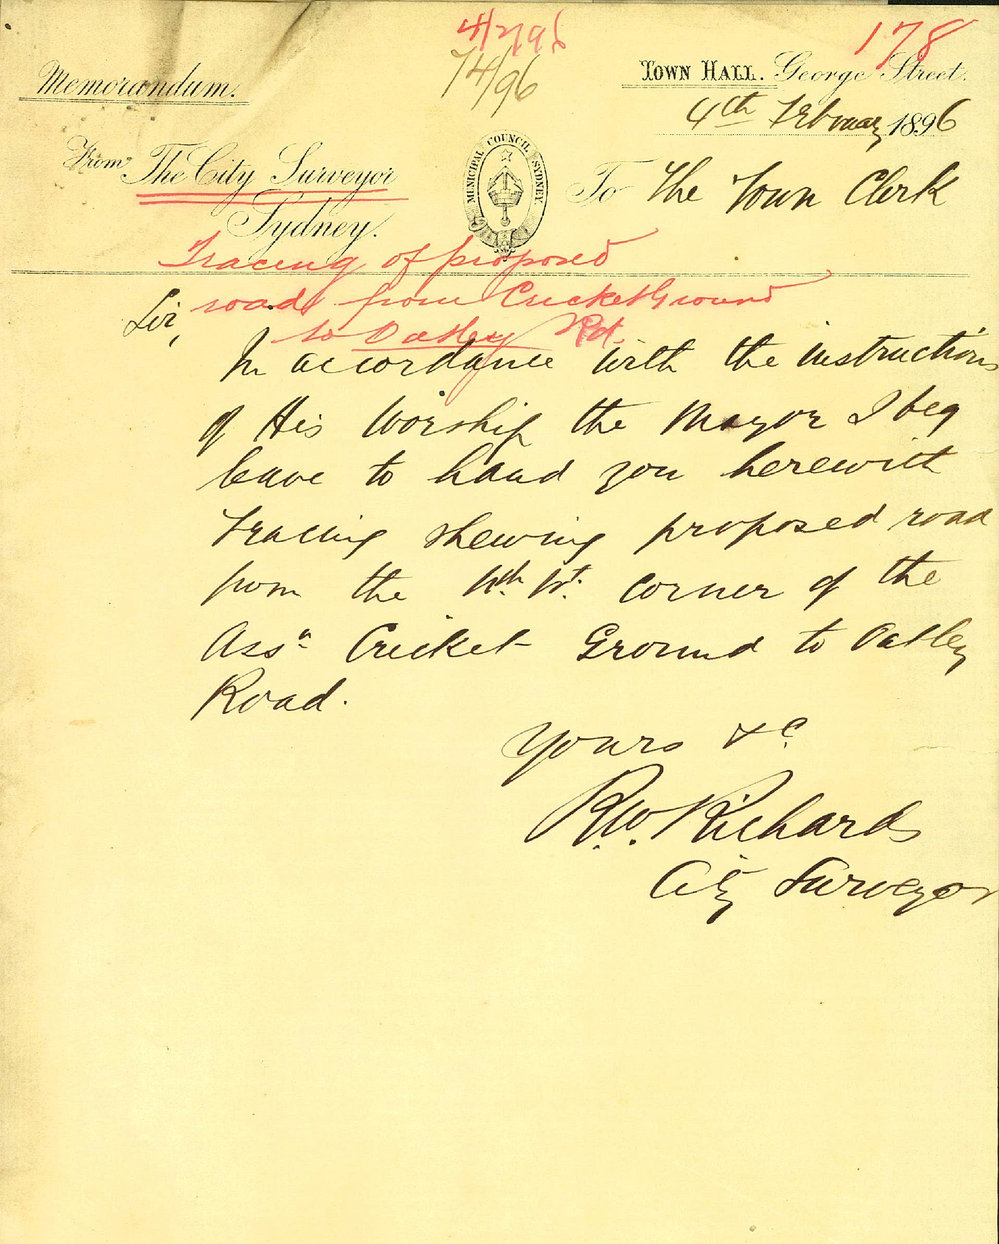 4/2/96
74/96
178
Memorandum.
Town Hall. George Street.
4th February 1896
From The City Surveyor
Sydney.
MUNICIPAL COUNCIL SYDNEY.
To The Town Clerk
Tracing of proposed
road from Cricket Ground
to Oatley Rd.
Sir,
In accordance with the instructions
of His Worship the Mayor I beg
leave to hand you herewith
tracing shewing proposed road
from the Nth. Wt. corner of the
Assn. Cricket Ground to Oatley
Road.
Yours &c.
R.W. Richards
City Surveyor